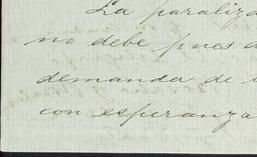 La paraliza
no debe pues a
demanda de
con esperanza